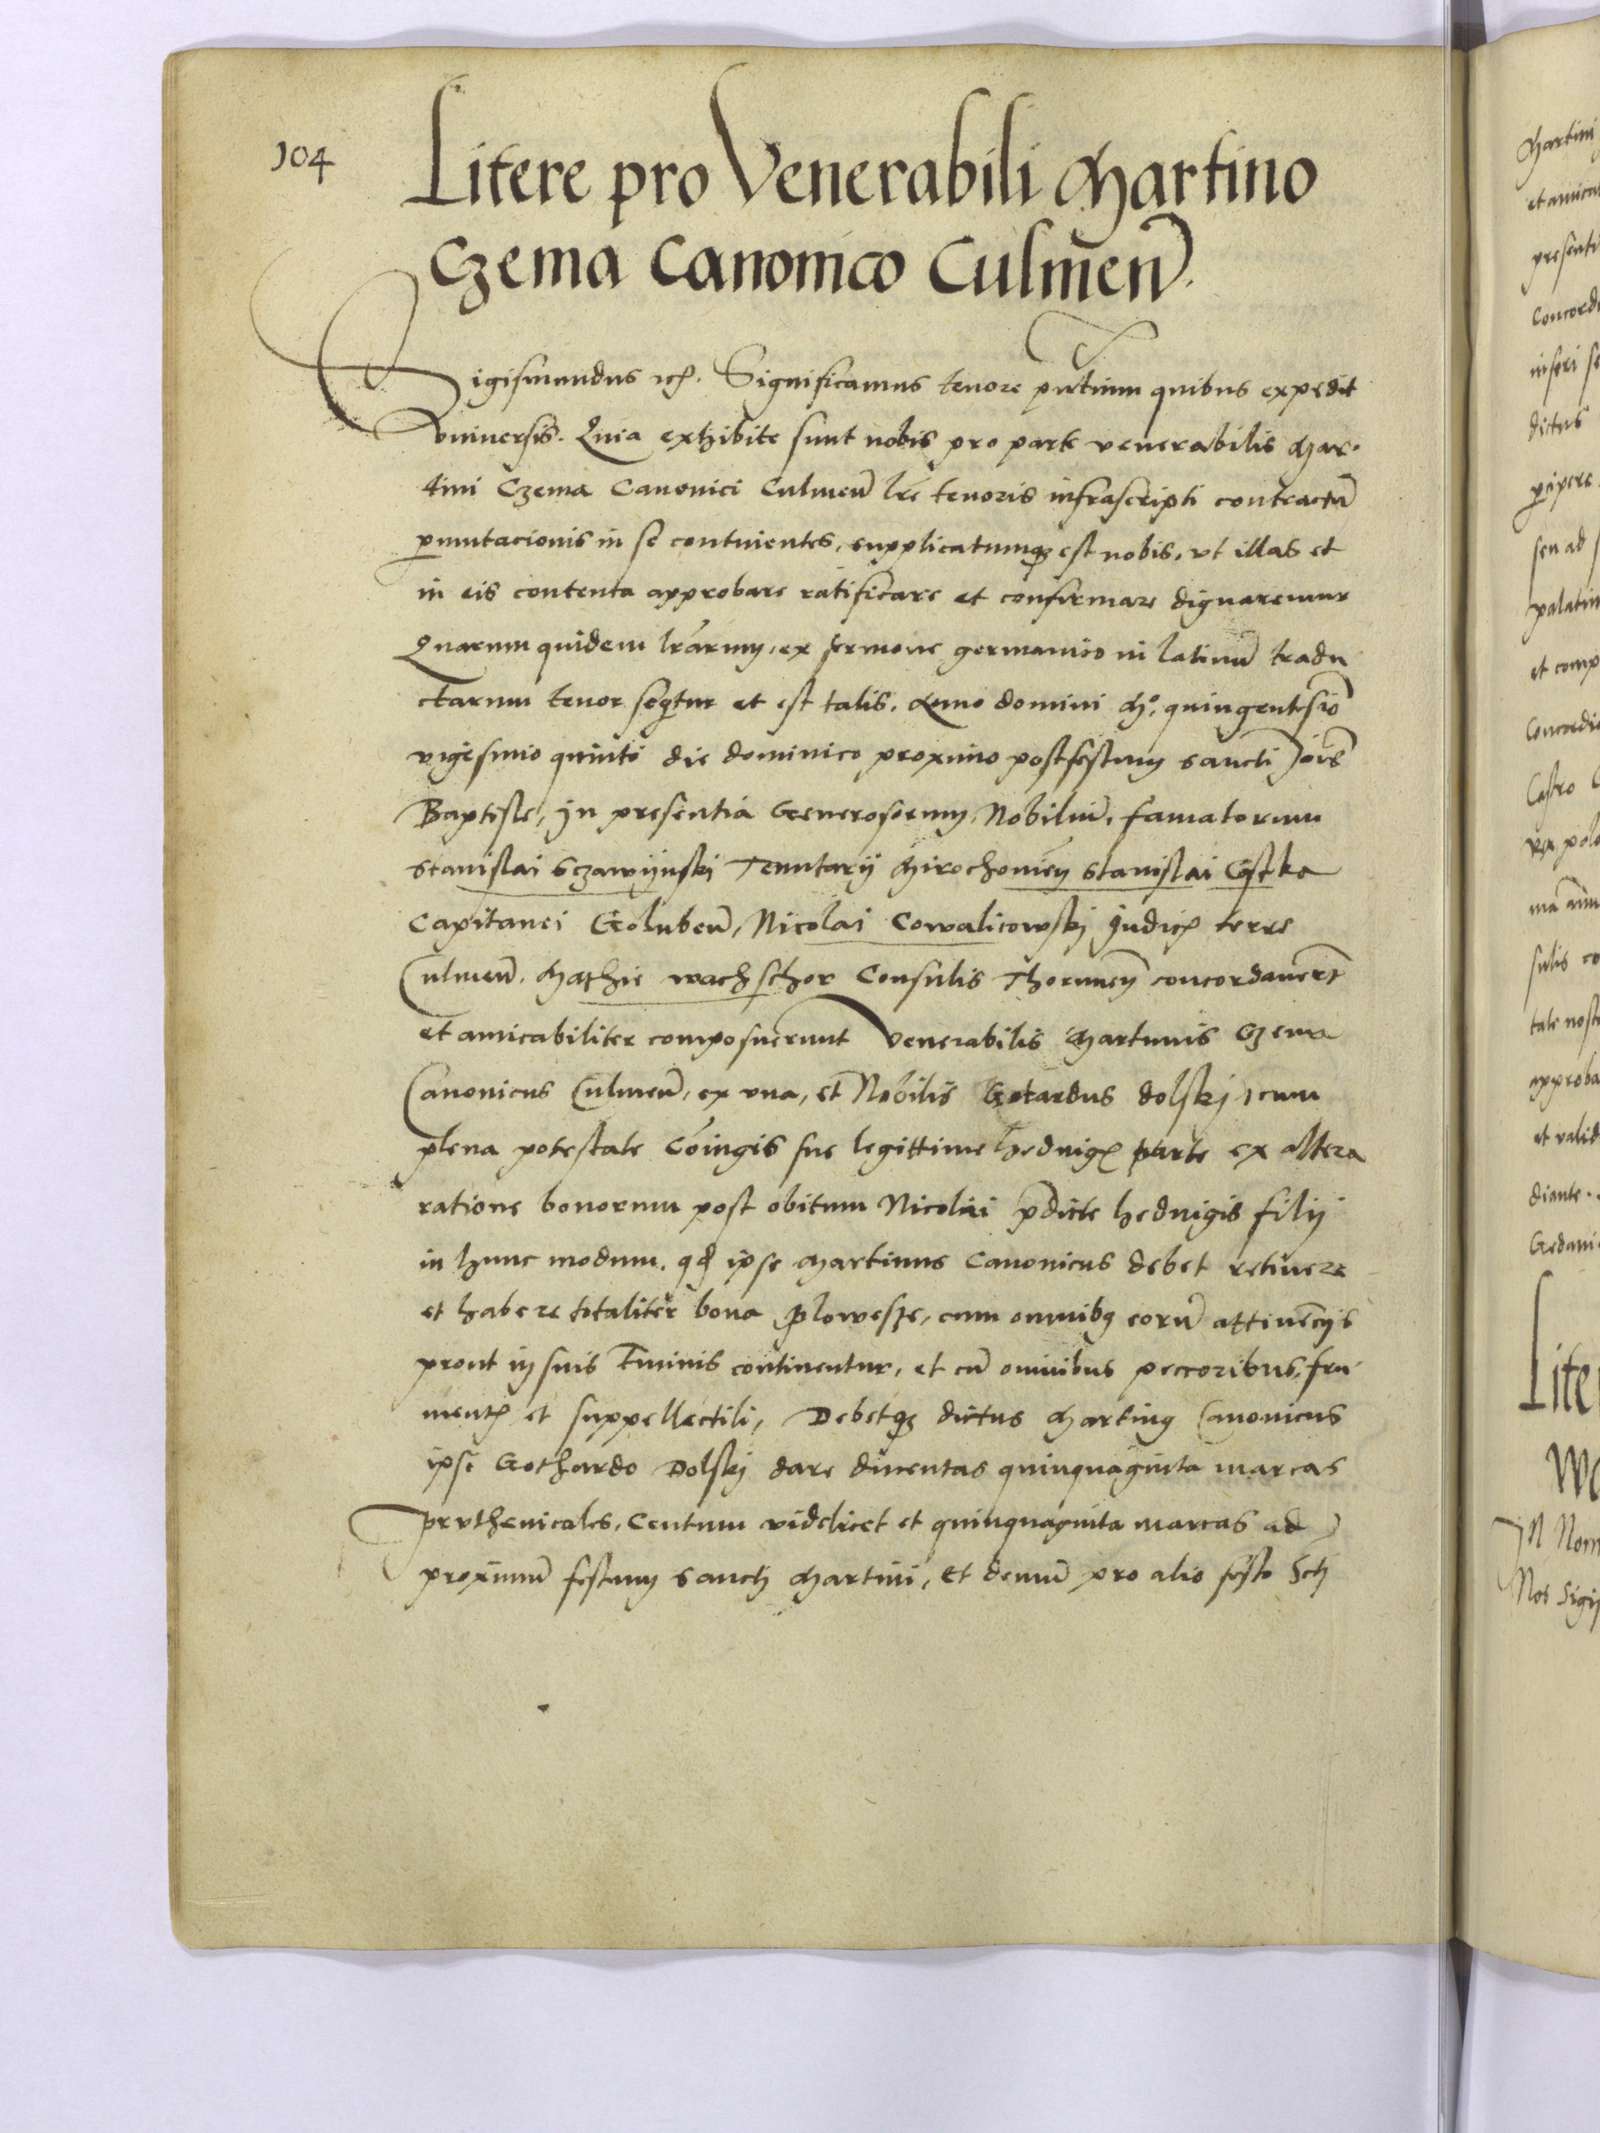 104
Litere pro Venerabili Martino
Czema Canonico Culmen̄.
Sigismundus etc̄. Significamus tenore pn̄tium quibus expedit
vniuersis. Quia exhibite sunt nobis pro parte venerabilis Mar-
tini Czema Canonici Culmen̄ lr̄e tenoris infrascripti contractū
permutacionis in se continentes, supplicatumqꝫ est nobis, vt illas et
in eis contenta approbare ratificare et confirmare dignaremur
Quarum quidem lr̄arum, ex sermone germanico in latinū tradu
ctarum tenor seqtur et est talis. Anno domini Mo, quingentesīo
vigesimo quinto die dominico proximo post festum sancti Joīs
Baptiste, in presentia Generosorum, Nobiliū, famatorum
stanislai sczawijnskj Tenutarij Mirochoniēn stanislai Costka
Capitanei Goluben̄, Nicolai Cowalicowskj Judicꝭ terre
Culmen̄. Mathie wachschor Consulis Thorunen̄ concordauerūt
et amicabiliter composuerunt Venerabilis Martinus Czema
Canonicus Culmen̄, ex vna, et Nobilis Gotardus dolskj, cum
plena potestate Cōiugis sue legittime hedvigꝭ parte ex altera
ratione bonorum post obitum Nicolai p̄dicte hedvigis filij
in hunc modum. qđ ipse Martinus Canonicus debet retinere
et habere totaliter bona Plowesze, cum omnibꝫ eorū attinēcijs
prout in suis Terminis continentur, et cū omnibus peccoribus, fru
mentꝭ et suppellectili, Debetqꝫ dictus Martinꝰ Canonicus
ipse Gothardo Dolskj dare ducentas quinquaginta marcas
pruthenicales. Centum videlicet et quinquaginta marcas ad
proximum festum sancti Martini, et demū pro alio festo Scti
Martini
et amicab
presenti
Concordi
inseri se
dictus
p̱cipere
seu ad
palatin
et comp
Concordie
Castro C
rex polo
sulis co
tate nost
approba
et valid
diante.
Gedani
Liter
Wo
IN Nom
Nos Sigis